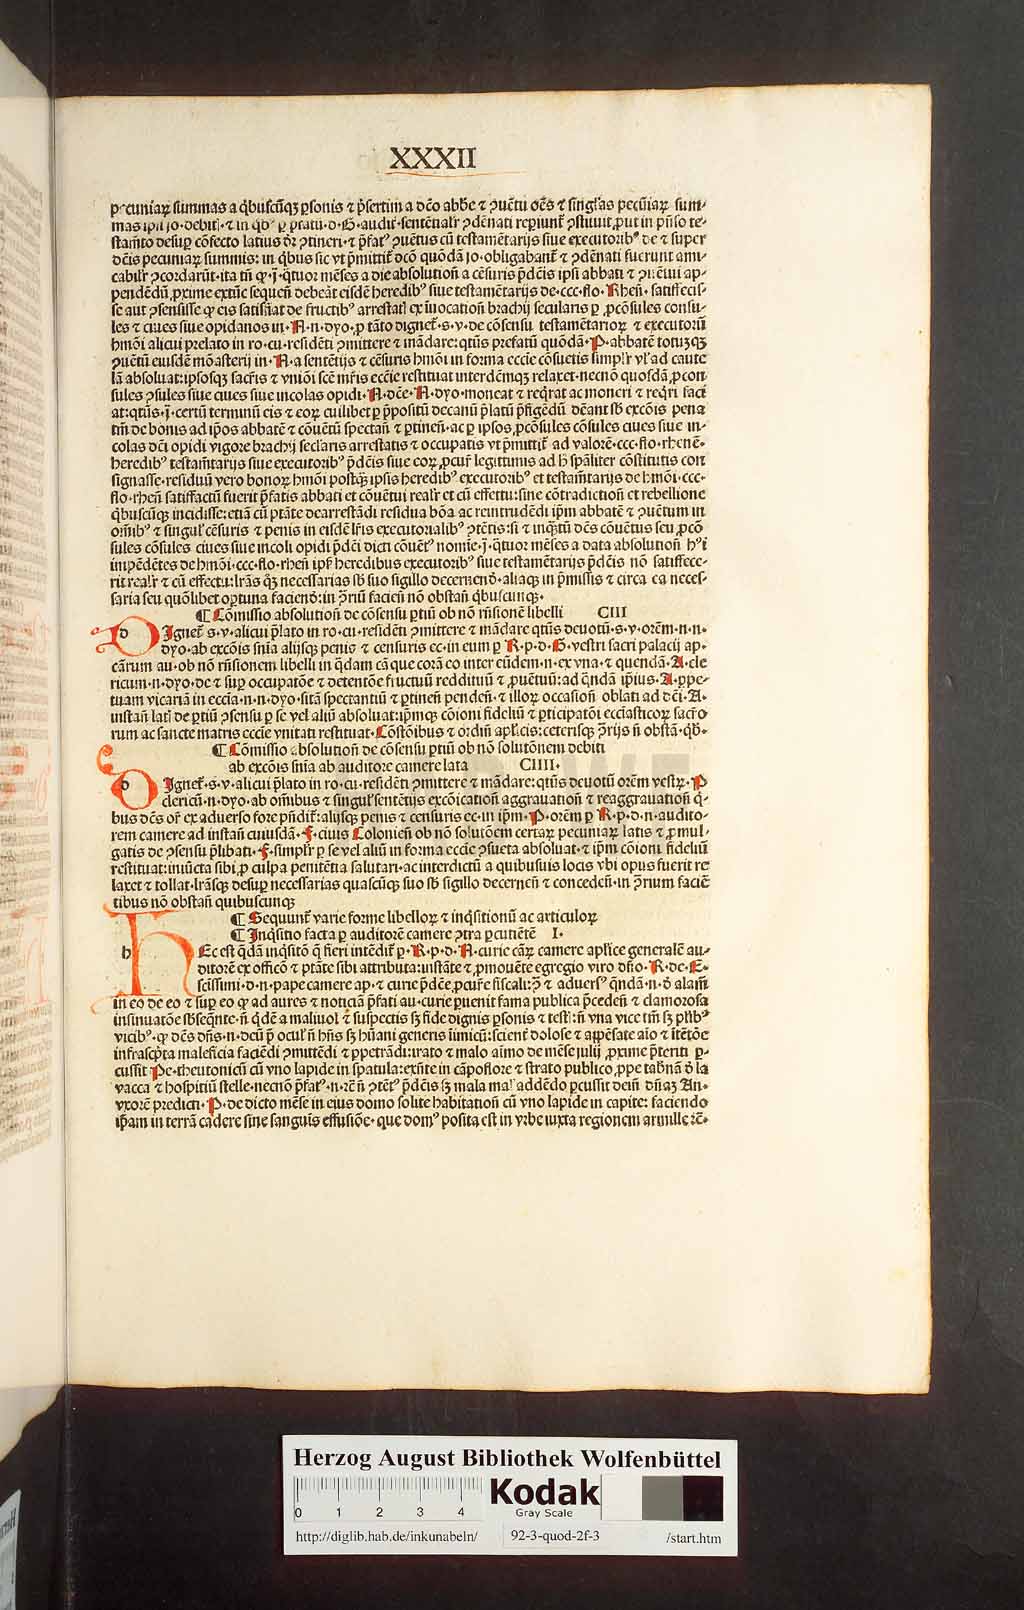 XXXII
pecuniaꝝ summas a q̄buscūqꝫ ꝑsonis ⁊ p̄sertim a dc̄o abbe ⁊ ꝯuētu oēs ⁊ singl̓as pecūiaꝝ sum-
mas ip̄i jo·debit· ⁊ in qb⁹ ꝑ p̄fatū·d·G·audit̄·sentētialr̓ ꝯdēnati repiunt̄ ꝯstituit ꝓut in pn̄so te-
stam̄to desuꝑ cōfecto latius dr̄ ꝯtineri·⁊ p̄fat⁹ ꝯuētus cū testamētarijs siue executorib⁹ de ⁊ super
dc̄is pecuniaꝝ summis: in qb̄us sic vt p̄mittit̄ dc̄o quōdā jo·obligabant̄ ⁊ ꝯdēnati fuerunt ami-
cabilr̓ ꝯcordarūt·ita tn̄ ꝙ·j·q̄tuor mēses a die absolution̄ a cēsuris p̄dc̄is ipsi abbati ⁊ ꝯuētui ap-
pendēdū ꝓxime extūc sequen̄ debeāt eisdē heredib⁹ siue testamētarijs de·ccc·flo·Rhen̄·satisfecis-
se aut ꝯsensisse ꝙ eis satisfiat de fructib⁹ arrestatꝭ ex īuocation̄ brachij secularis ꝑ ꝓcōsules consu-
les ⁊ ciues siue opidanos in·N·n·dyo·ꝓ tāto dignet̄·s·v·de cōsensu testamētarioꝝ ⁊ executorū
hmōi alicui prelato in ro·cu·residēti ꝯmittere ⁊ mādare: qtūs prefatū quōdā·P·abbatē totūqꝫ
ꝯuētū eiusdē mōasterij in·N·a sentētijs ⁊ cēsuris hmōi in forma eccie cōsuetis simplr̓ vl̓ ad caute
lā absoluat: ipsosqꝫ sacr̄is ⁊ vniōi scē mr̄is ecc̄ie restituat interdēmqꝫ relaxet·necnō quosdā ꝓcon
sules ꝯsules siue ciues siue incolas opidi·N·dc̄e·N·dyo·moneat ⁊ req̄rat ac moneri ⁊ req̄ri faci
at: qtūs·j·certū terminū eis ⁊ eoꝝ cuilibet ꝑ p̄positū decanū p̄latū p̄figēdū dēant sb̄ excōis pena
tm̄ de bonis ad ip̄os abbatē ⁊ cōuētū spectan̄ ⁊ ꝑtinen̄·ac ꝑ ipsos ꝓcōsules cōsules ciues siue in-
colas dc̄i opidi vigore brachij secl̓aris arrestatis ⁊ occupatis vt p̄mittit̄ ad valorē·ccc·flo·rhenē·
heredib⁹ testam̄tarijs siue executorib⁹ p̄dc̄is siue eoꝝ ꝓcur̄ legittimis ad h̄ spāliter cōstitutis con
signasse·residuū vero bonoꝝ hmōi postq̄ꝫ ipsis heredib⁹ executorib⁹ et testam̄tarijs de hmōi·ccc·
flo·rhen̄ satisfactū fuerit p̄fatis abbati et cōuētui realr̓ et cū effectu: sine cōtradiction̄ et rebellione
q̄buscūqꝫ incidisse: etiā cū ptāte dearrestādi residua bōa ac reintrudēdi ip̄m abbatē ⁊ ꝯuētum in
om̄ib⁹ ⁊ singul̓ cēsuris ⁊ penis in eisdē lr̄is executorialib⁹ ꝯtētis: si ⁊ inq̄tū dc̄s cōuētus seu ꝓcō
sules cōsules ciues siue incoli opidi p̄dc̄i dicti cōuēt⁹ nomīe·j·q̄tuor mēses a data absolution̄ h⁹i
impēdētes de hmōi·ccc·flo·rhen̄ ip̄ꝭ heredibus executorib⁹ siue testamētarijs p̄dc̄is nō satisfece-
rit realr̓ ⁊ cū effectu: lr̄as qꝫ necessarias sb̄ suo sigillo decernend̄·aliaqꝫ in p̄missis ⁊ circa ea neces-
saria seu quōlibet oꝑtuna faciend̄: in ꝯrium facien̄ nō obstan̄ qb̄uscunqꝫ·
¶ Cōmissio absolution̄ de cōsensu ꝑtiū ob nō rn̄sionē libelli CIII
d Ignet̄·s·v·alicui p̄lato in ro·cu·residēti ꝯmittere ⁊ mādare qtūs deuotū·s·v·orēm·n·n·
dyo·ab excōis sn̄ia alijsqꝫ penis ⁊ censuris ⁊c·in eum ꝑ R·p·d·G·vestri sacri palacij ap-
cārum au·ob nō rn̄sionem libelli in q̄dam cā que corā eo inter eūdem·n·ex vna·⁊ quendā·A·cle
ricum·n·dyo·de ⁊ suꝑ occupatōe ⁊ detentōe fructuū reddituū ⁊ ꝓuētuū: ad q̄ndā ip̄ius·A·ꝑpe-
tuam vicariā in eccīa·n·n·dyo·sitā spectantiū ⁊ ꝑtinen̄ penden̄·⁊ illoꝝ occasion̄ oblati ad dc̄i·A·
instan̄ latꝭ de ꝑtiū ꝯsensu ꝑ se vel aliū absoluat: ip̄mqꝫ cōioni fideliū ⁊ ꝑticipatōi eccīasticoꝝ sacr̄o
rum ac sancte matris eccie vnitati restituat·Cōstōibus ⁊ ordin̄ apl̓icis: ceterisqꝫ ꝯrijs n̄ obstā·qb̄·
¶ Cōmissio absolution̄ de cōsensu ꝑtiū ob nō solutōnem debiti
ab excōis sn̄ia ab auditore camere lata CIIII·
d Ignet̄·s·v·alicui p̄lato in ro·cu·residēti ꝯmittere ⁊ mādare: qtūs deuotū orēm vestꝝ·P
clericū·n·dyo·ab om̄ibus ⁊ singul̓ sentētijs excōication̄ aggrauation̄ ⁊ reaggrauation̄ q̄-
bus dc̄s or̄ ex aduerso fore pn̄dit̄: alijsqꝫ penis ⁊ censuris ⁊c·in ip̄m·P·orēm ꝑ R·p·d·n·audito-
rem camere ad instan̄ cuiusdā·F·ciuis Colonien̄ ob nō solutōem certaꝝ pecuniaꝝ latis ⁊ ꝓmul
gatis de ꝯsensu p̄libati·F·simplr̓ ꝑ se vel aliū in forma eccie ꝯsueta absoluat·⁊ ip̄m cōioni fideliū
restituat: iniūcta sibi ꝓ culpa penitētia salutari·ac interdictū a quibusuis locis vbi opus fuerit re
laxet ⁊ tollat·lr̄asqꝫ desuꝑ necessarias quascūqꝫ suo sb̄ sigillo decernen̄ ⁊ conceden̄·in ꝯrium faciē
tibus nō obstan̄ quibuscunqꝫ
¶ Sequunt̄ varie forme libelloꝝ ⁊ inq̄sitionū ac articuloꝝ
¶ Inq̄sitio facta ꝑ auditorē camere ꝯtra ꝑcutiētē I·
h Ec est q̄dā inq̄sitō q̄ fieri intēdit̄ ꝑ·R·p·d·N·curie caꝝ camere apl̓ice generalē au-
ditorē ex officō ⁊ ptāte sibi attributa: instāte ⁊ ꝓmouēte egregio viro dn̄o·R·de·E·
scissimi·d·n·pape camere ap·⁊ curie p̄dc̄e ꝓcur̄e fiscali: ꝯ̄ ⁊ aduers⁹ q̄ndā·n·d̄ alam̄
in eo de eo ⁊ suꝑ eo ꝙ ad aures ⁊ noticiā p̄fati au·curie ꝑuenit fama publica p̄ceden̄ ⁊ clamorosa
insinuatōe sb̄seq̄nte·n̄ q̄dē a maliuol̓ ⁊ suspectis sꝫ fide dignis ꝑsonis ⁊ test̄: n̄ vna vice tm̄ sꝫ pl̓ib⁹
vicib⁹·ꝙ dc̄s dn̄s·n·deū p̄ ocul̓ n̄ hn̄s sꝫ hūani generis īimicū: scient̄ dolose ⁊ appēsate aīo ⁊ itētōe
infrascp̄ta maleficia faciēdi ꝯmittēdi ⁊ ꝑpetrādi: irato ⁊ malo aīmo de mēse julij ꝓxime p̄teriti ꝑ-
cussit Pe·theutonicū cū vno lapide in spatula: exn̄te in cāpoflore ⁊ strato publico ꝓpe tab̄nā d̄ la
vacca ⁊ hospitiū stelle·necnō p̄fat⁹·n·rēn̄ ꝯtēt⁹ p̄dc̄is sꝫ mala mal̓ addēdo ꝑcussit dein̄ dn̄aꝫ An-
vxorē predicti·P·de dicto mēse in eius domo solite habitation̄ cū vno lapide in capite: faciendo
ip̄am in terrā cadere sine sanguīs effusiōe·que dom⁹ posita est in vrbe iuxta regionem armille rē·
Herzog August Bibliothek Wolfenbüttel
0 1 2 3 4
Kodak
Gray Scale
http://diglib.hab.de/inkunabeln/ 92-3-quod-2f-3 /start.htm